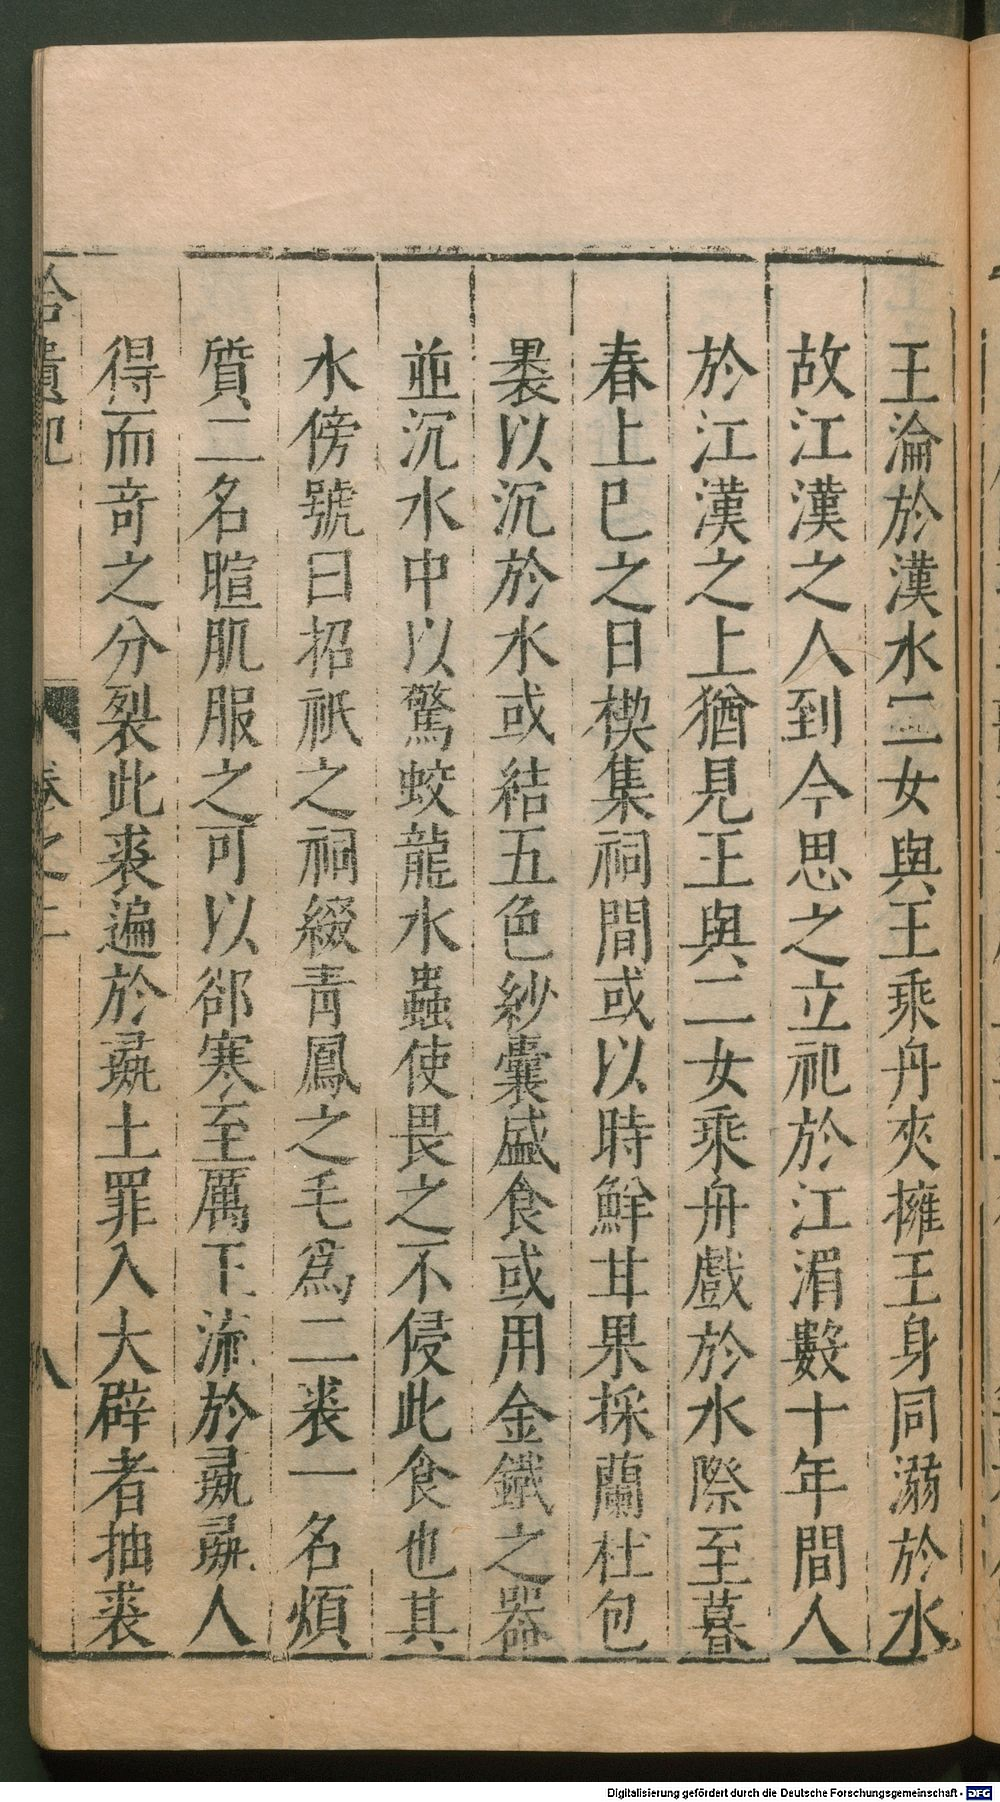 王淪於漢水二女與王乘舟夾擁王身同溺於水
故江漢之人到今思之立祀於江湄數十年間人
於江漢之上猶見王與二女乘舟戲於水際至暮
春上巳之日禊集祠間或以時鮮甘果採蘭杜包
裹以沉於水或結五色紗囊盛食或用金鐵之器
並沉水中以驚蛟龍水蟲使畏之不侵此食也其
水傍號曰招祇之祠綴青鳳之毛爲二裘一名煩
質二名暄肌服之可以郤寒至厲下流於彘彘人
得而奇之分裂此裘遍於彘土罪入大辟者抽裘
拾遺記 卷之二 八
Digitalisierung gefördert durch die Deutsche Forschungsgemeinschaft - DFG